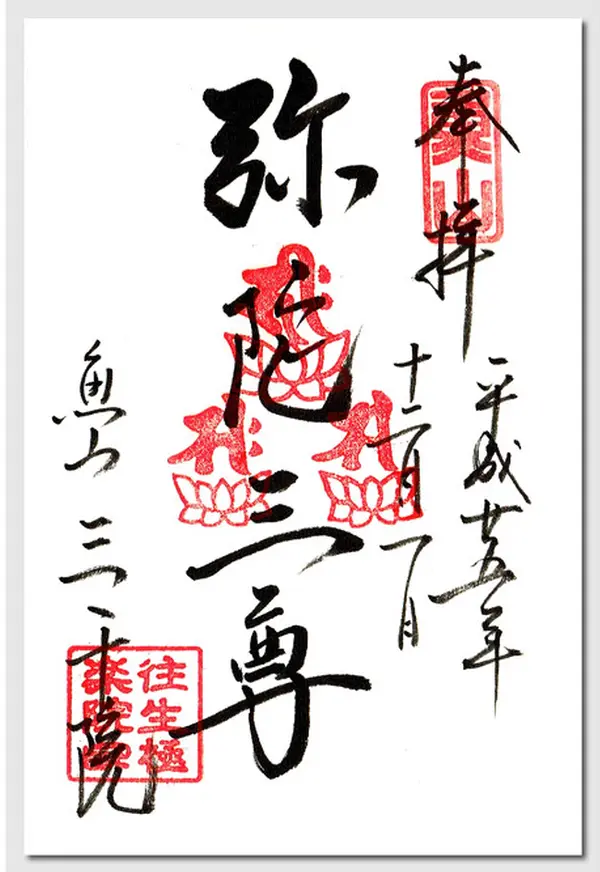 奉拝
平成廿五年
十二月一日
弥陀三尊
魚山三千院
往生極
楽院